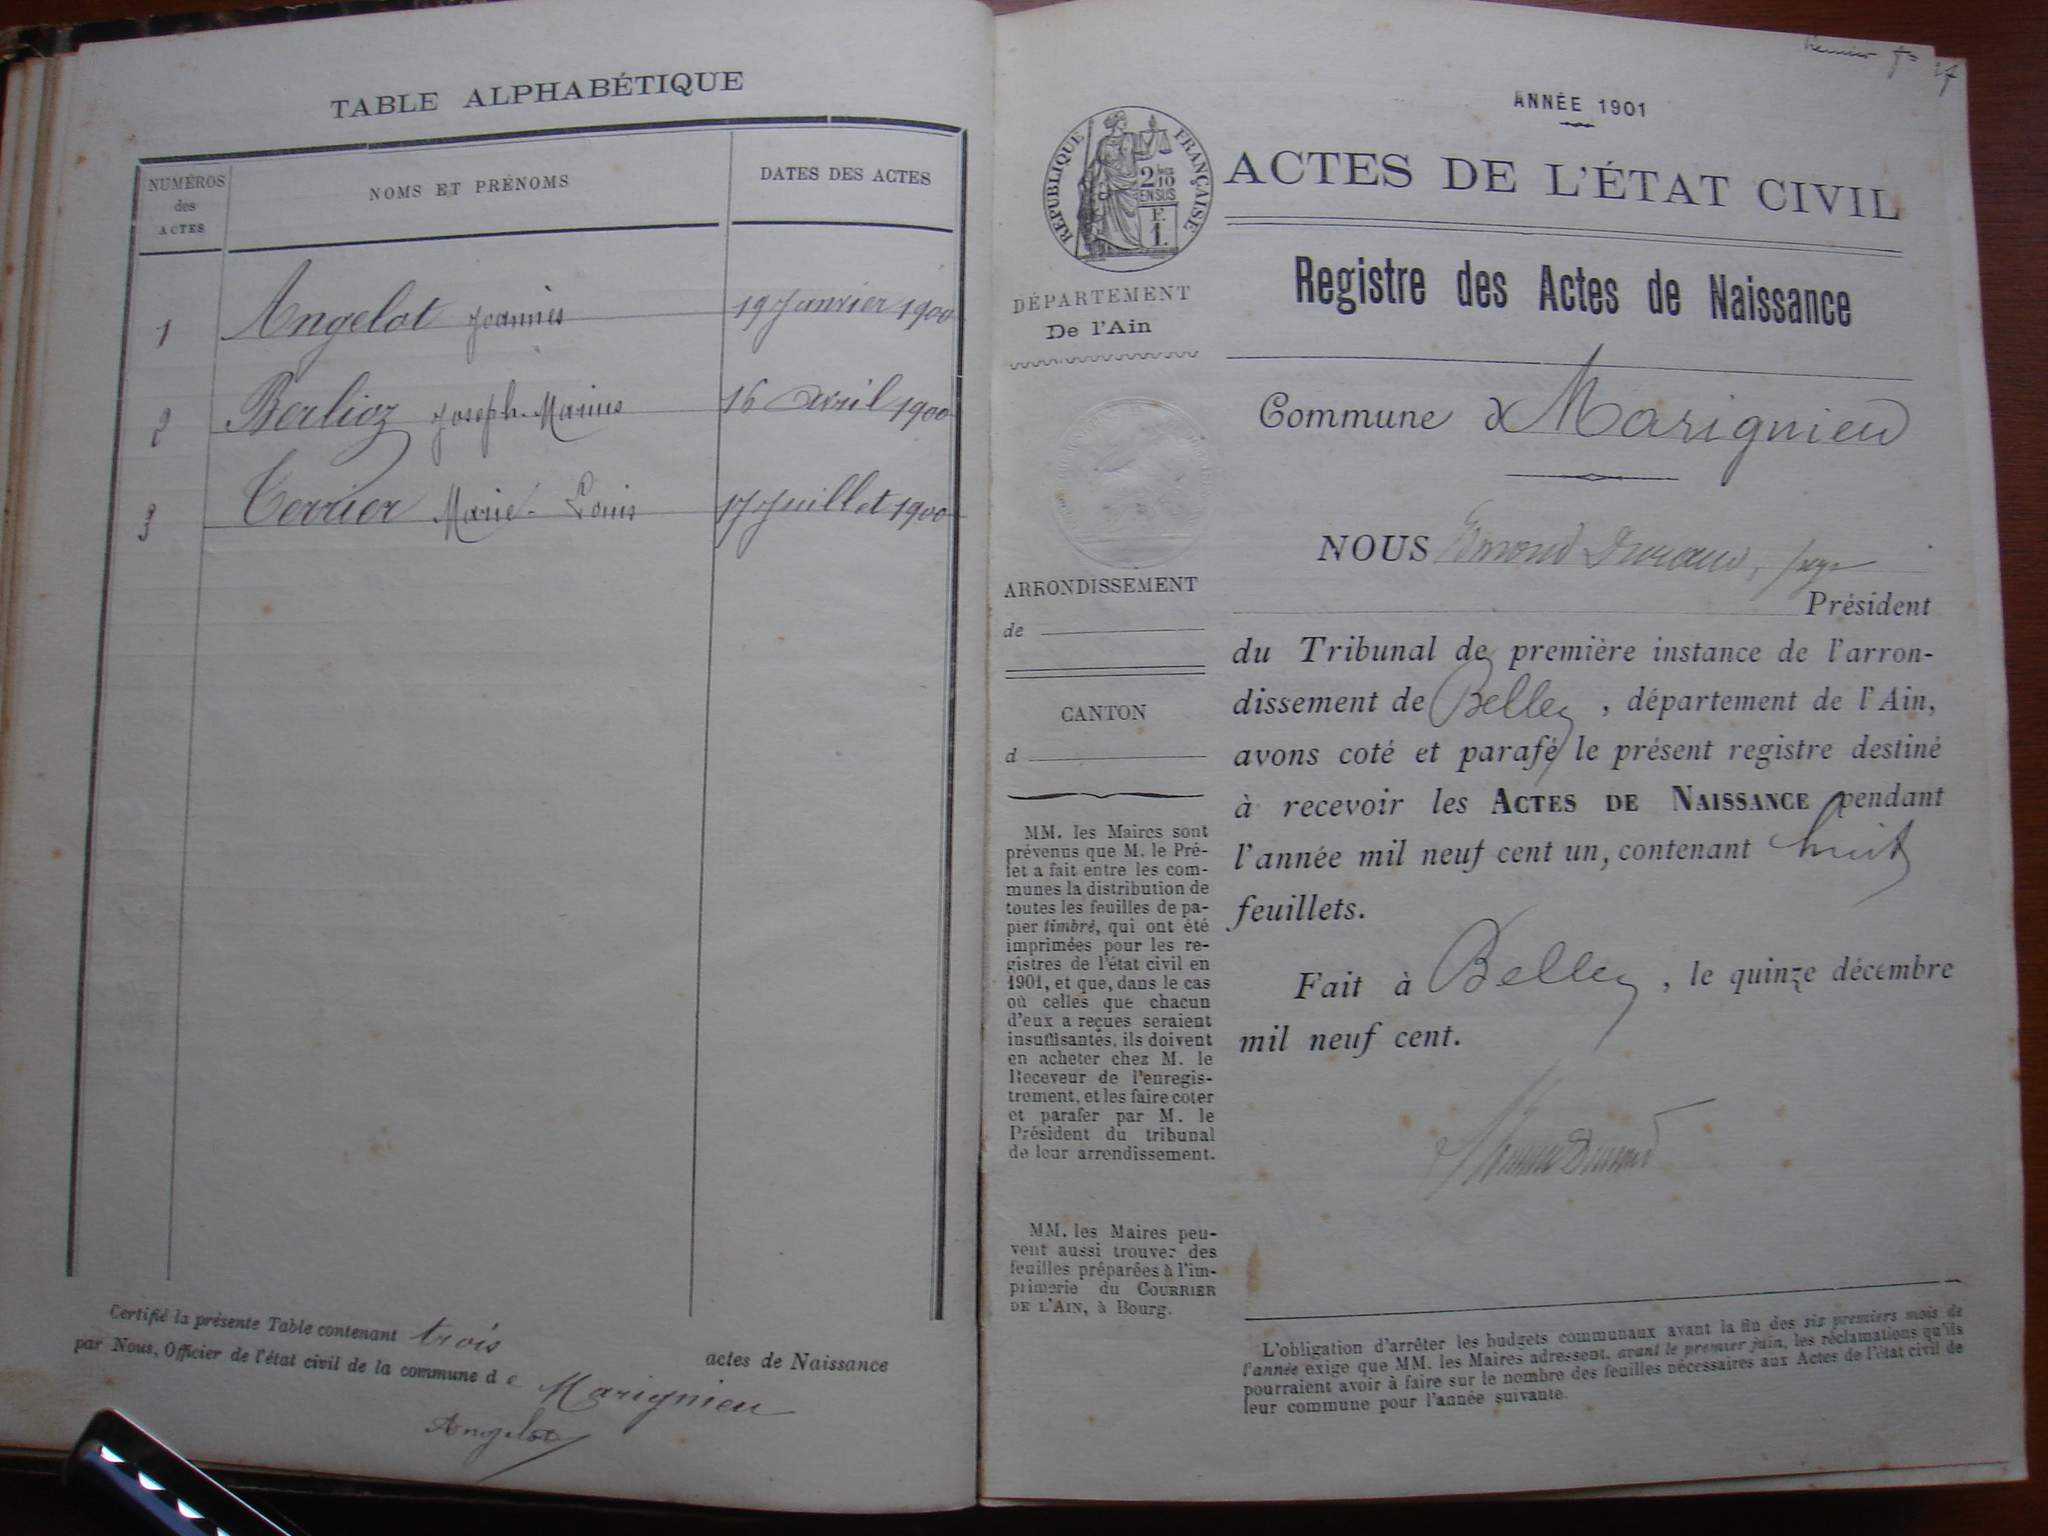 TABLE ALPHABÉTIQUE
NUMÉROS
des
ACTES
NOMS ET PRÉNOMS
DATES DES ACTES
1 Angelot Joannès 19 Janvier 1900
2 Berlioz Joseph-Marius 16 Avril 1900
3 Terrier Marie-Louis 17 Juillet 1900
Certifié la présente Table contenant trois actes de Naissance
par Nous, Officier de l'état civil de la commune de Marignieu
Angelot
ANNÉE 1901
RÉPUBLIQUE FRANÇAISE
ACTES DE L'ÉTAT CIVIL
Registre des Actes de Naissance
DÉPARTEMENT
De l'Ain
Commune d Marignieu
ARRONDISSEMENT
de
CANTON
d
MM. les Maires sont
prévenus que M. le Pré-
fet a fait entre les com-
munes la distribution de
toutes les feuilles de pa-
pier timbré, qui ont été
imprimées pour les re-
gistres de l'état civil en
1901, et que, dans le cas
où celles que chacun
d'eux a reçues seraient
insuffisantes, ils doivent
en acheter chez M. le
Receveur de l'enregis-
trement, et les faire coter
et parafer par M. le
Président du tribunal
de leur arrondissement.
MM. les Maires peu-
vent aussi trouver des
feuilles préparées à l'im-
primerie du COURRIER
DE L'AIN, à Bourg.
NOUS Durand, juge
Président
du Tribunal de première instance de l'arron-
dissement de Belley, département de l'Ain,
avons coté et parafé le présent registre destiné
à recevoir les ACTES DE NAISSANCE pendant
l'année mil neuf cent un, contenant huit
feuillets.
Fait à Belley, le quinze décembre
mil neuf cent.
Durand
L'obligation d'arrêter les budgets communaux avant la fin des six premiers mois de
l'année exige que MM. les Maires adressent, avant le premier juin, les réclamations qu'ils
pourraient avoir à faire sur le nombre des feuilles nécessaires aux Actes de l'état civil de
leur commune pour l'année suivante.